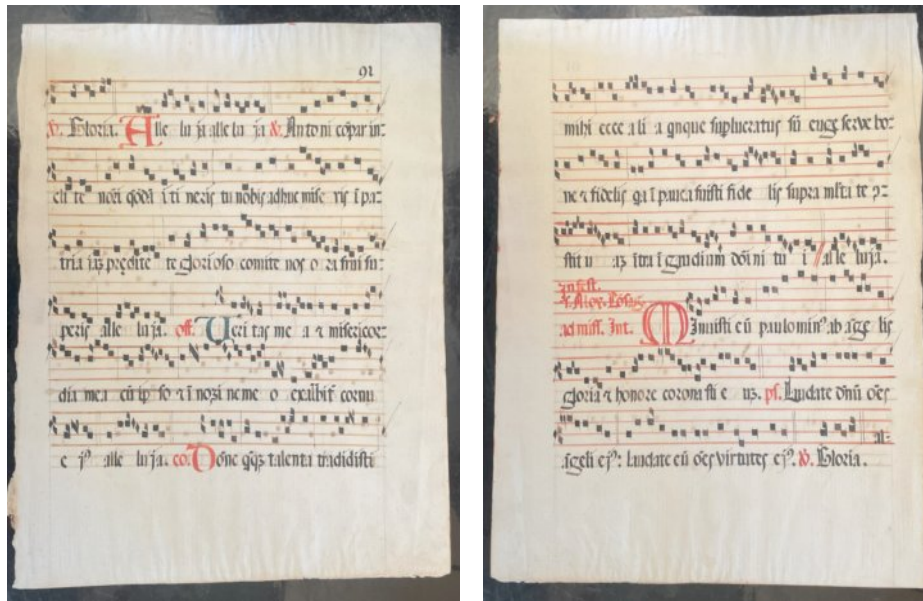 91
℣. Gloria. Alle lu ja alle lu ja ℣. An to ni cōpar in-
cli te nōri qōdā i ti neris tu nobis adhuc mise ris i pa-
tria jaz te glori oso comite nos o ra frui su-
peris alle lu ja. off. Ueri tas me a ⁊ misericor-
dia mea cū ip so ⁊ ī nozi ne me o exalbit cornu
e j⁹ alle lu ja. co. Dōne talenta tradidisti
mihi ecce a li a qnque suplucratus sū euge serve bo-
ne ⁊ fidelis qa ī pauca fuisti fide lis supra mlta te ɔ-
stit u az ītra ī gaudium dōi ni tu i alle luja.
In fest.
ad miss. Int. Minuisti eū paulomin⁹ ab āge lis
gloria ⁊ honore corona sti e uz. ps. Laudate dnū oēs
al-
āgeli ej⁹: laudate eū oēs virtutes ej⁹. ℣. Gloria.